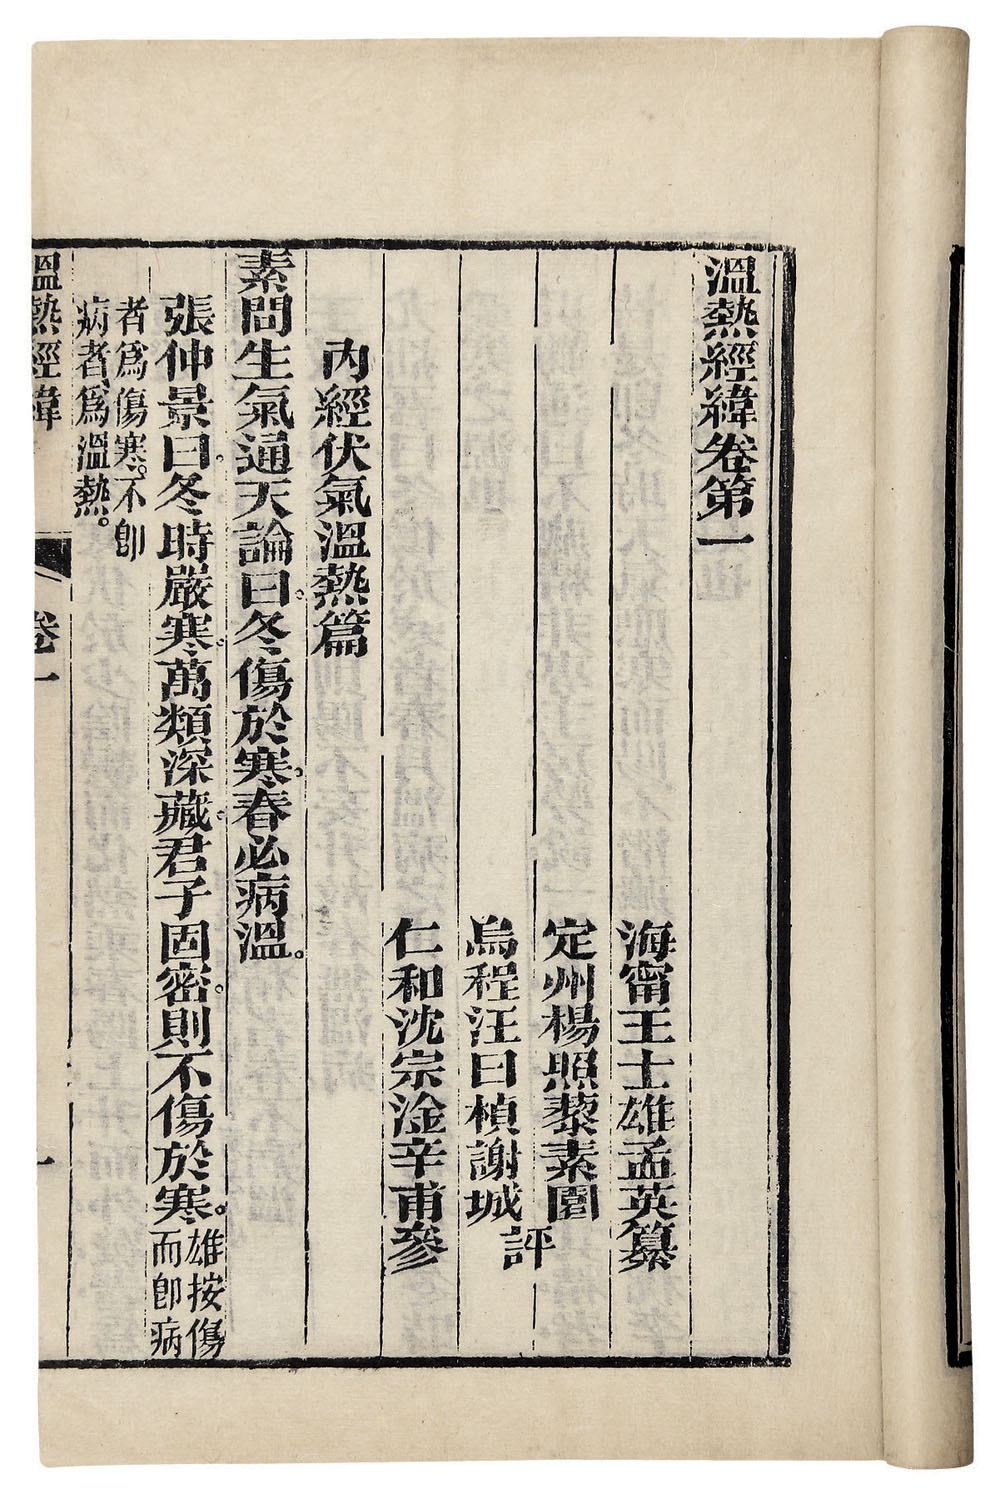 溫熱經緯卷第一
海甯王士雄孟英纂
定州楊照藜素園
烏程汪曰楨謝城
評
仁和沈宗淦辛甫參
內經伏氣溫熱篇
素問生氣通天論曰冬傷於寒春必病溫。
張仲景曰冬時嚴寒萬類深藏君子固密則不傷於寒。
雄按傷
而卽病
者爲傷寒。不卽
病者爲溫熱。
溫熱經緯
卷一
一